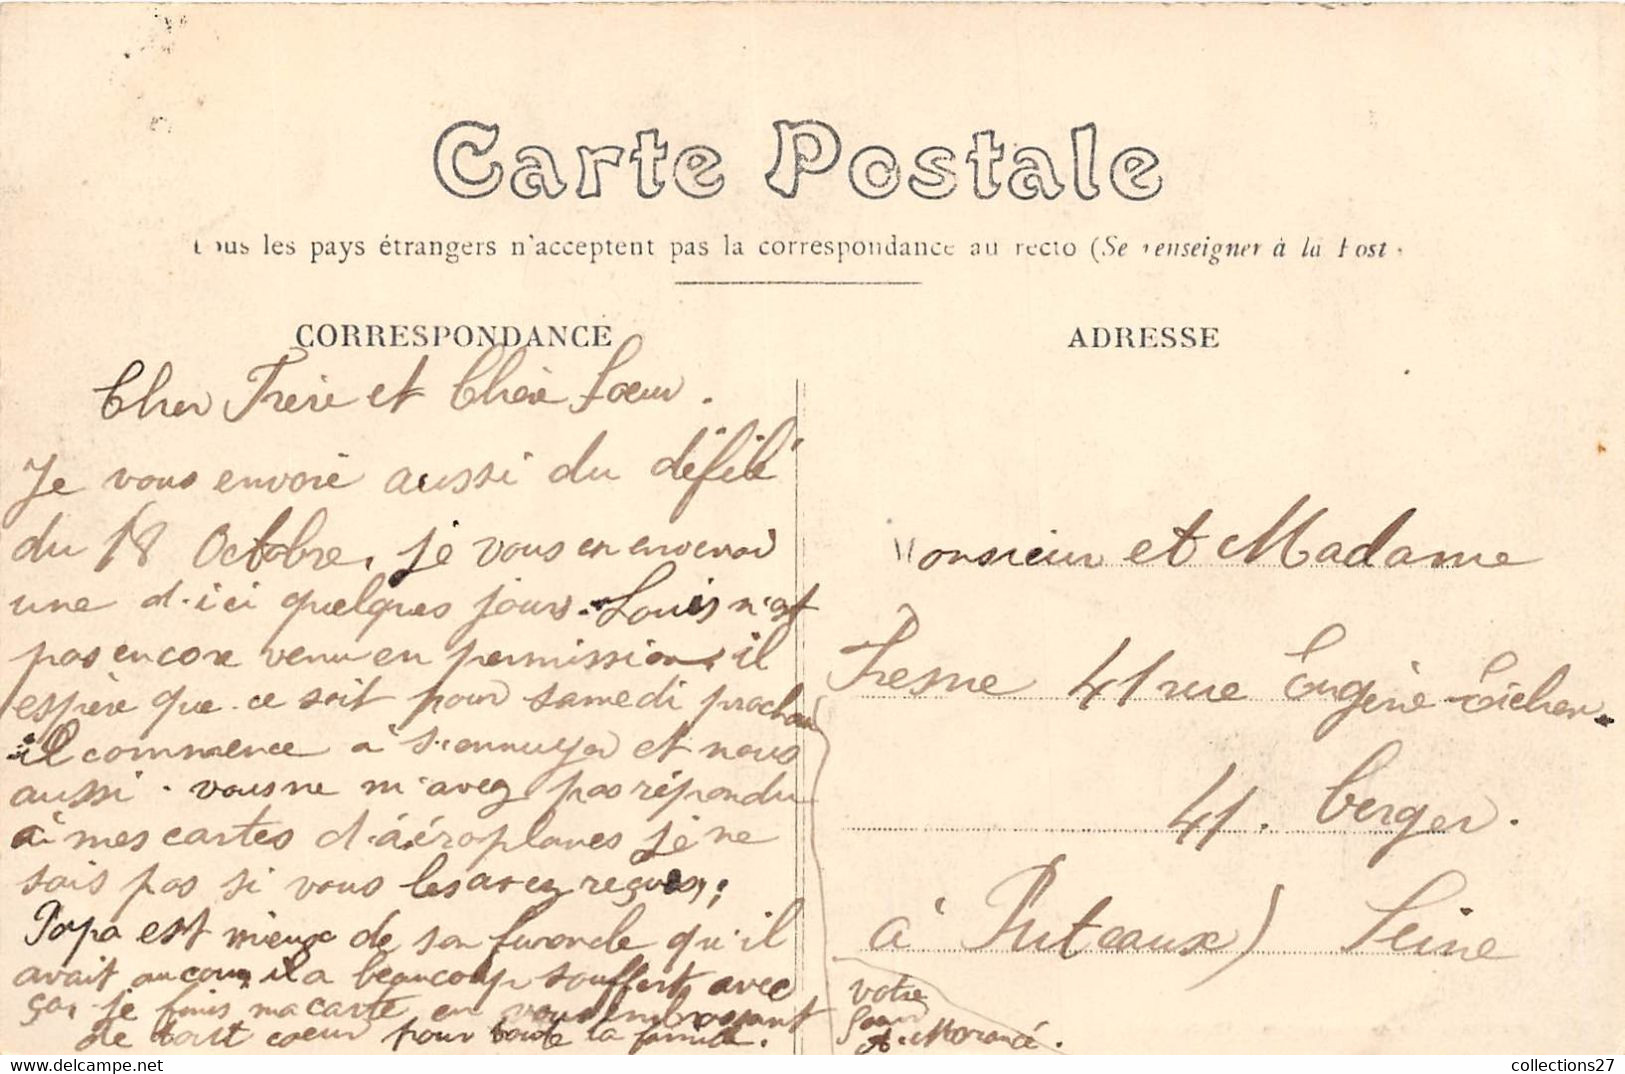 Carte Postale
tous les pays étrangers n'acceptent pas la correspondance au recto (Se renseigner à la Post
CORRESPONDANCE
Cher Frère et Chère Soeur.
Je vous envoie aussi du défilé
du 18 Octobre, je vous en enverai
une d'ici quelques jours. Louis n'est
pas encore venu en permission, il
espère que ce soit pour samedi prochain
il commence a s'ennuyer et nous
aussi. vous ne m'avez pas répondu
à mes cartes d'aéroplanes je ne
sais pas si vous les avez reçues,
Papa est mieux de son furoncle qu'il
avait au cou, il a beaucoup souffert avec
ça, je finis ma carte en vous embrassant
de tout coeur pour toute la famille.
votre
soeur
A. Morancé.
ADRESSE
Monsieur et Madame
Fresne 41 rue Eugène
41. berger.
à Puteaux) Seine
https://www.delcampe.net
collections27